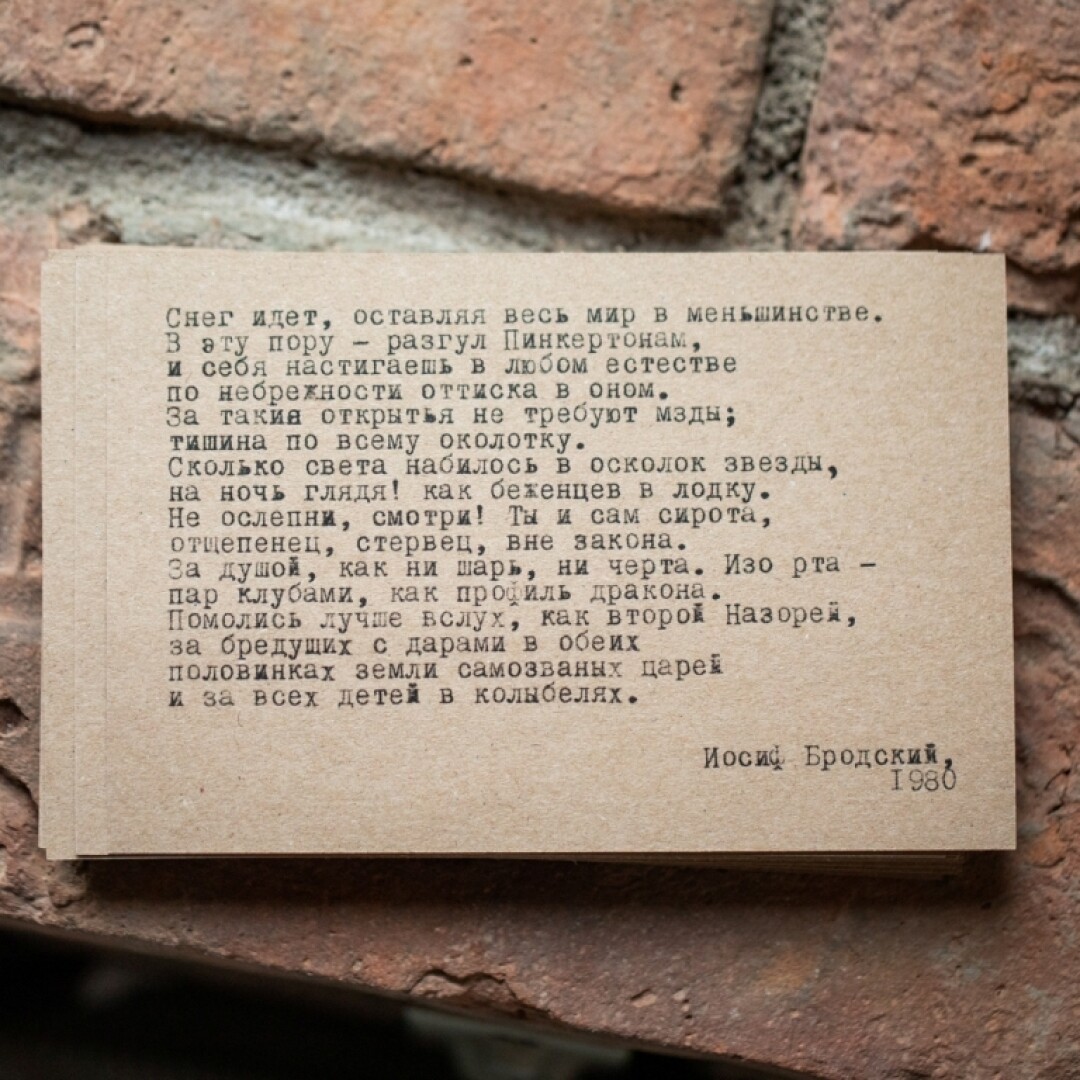 Снег идет, оставляя весь мир в меньшинстве.
В эту пору – разгул Пинкертонам,
и себя настигаешь в любом естестве
по небрежности оттиска в оном.
За такие открытья не требуют мзды;
тишина по всему околотку.
Сколько света набилось в осколок звезды,
на ночь глядя! как беженцев в лодку.
Не ослепни, смотри! Ты и сам сирота,
отщепенец, стервец, вне закона.
За душой, как ни шарь, ни черта. Изо рта –
пар клубами, как профиль дракона.
Помолись лучше вслух, как второй Назорей,
за бредущих с дарами в обеих
половинках земли самозваных царей
и за всех детей в колыбелях.
Иосиф Бродский,
1980